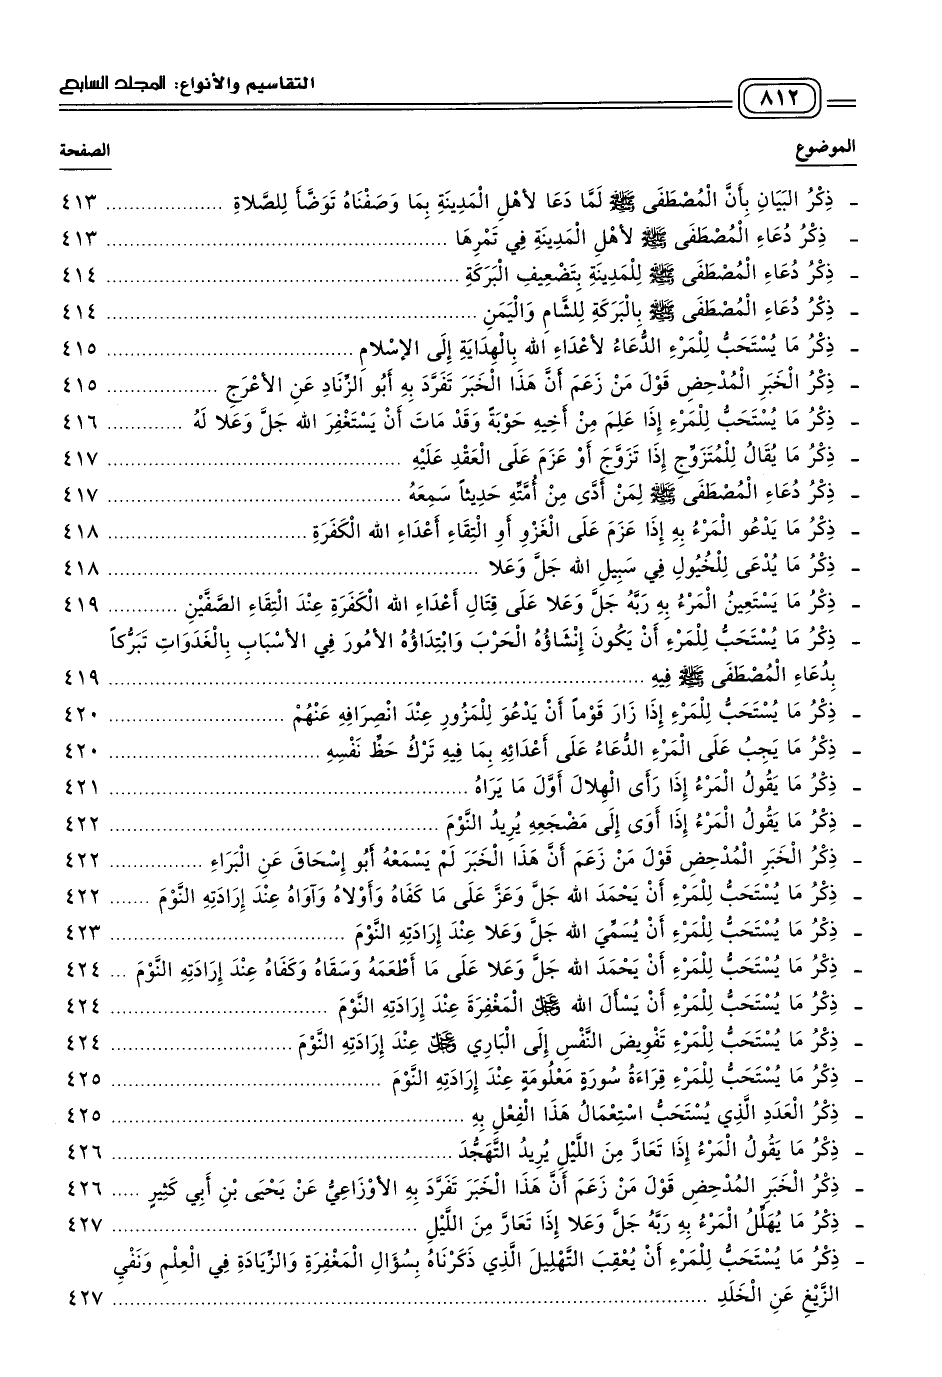 ٨١٢ التقاسيم والأنواع: المجلد السابع
الموضوع الصفحة
- ذِكْرُ البَيَانِ بِأَنَّ الْمُصْطَفَى ﷺ لَمَّا دَعَا لأَهْلِ الْمَدِينَةِ بِمَا وَصَفْنَاهُ تَوَضَّأَ لِلصَّلاةِ .................... ٤١٣
- ذِكْرُ دُعَاءِ الْمُصْطَفَى ﷺ لأَهْلِ الْمَدِينَةِ فِي تَمْرِهَا .................... ٤١٣
- ذِكْرُ دُعَاءِ الْمُصْطَفَى ﷺ لِلْمَدِينَةِ بِتَضْعِيفِ الْبَرَكَةِ .................... ٤١٤
- ذِكْرُ دُعَاءِ الْمُصْطَفَى ﷺ بِالْبَرَكَةِ لِلشَّامِ وَالْيَمَنِ .................... ٤١٤
- ذِكْرُ مَا يُسْتَحَبُّ لِلْمَرْءِ الدُّعَاءُ لأَعْدَاءِ الله بِالْهِدَايَةِ إِلَى الإِسْلامِ .................... ٤١٥
- ذِكْرُ الْخَبَرِ الْمُدْحِضِ قَوْلَ مَنْ زَعَمَ أَنَّ هَذَا الْخَبَرَ تَفَرَّدَ بِهِ أَبُو الزِّنَادِ عَنِ الأَعْرَجِ .................... ٤١٥
- ذِكْرُ مَا يُسْتَحَبُّ لِلْمَرْءِ إِذَا عَلِمَ مِنْ أَخِيهِ حَوْبَةً وَقَدْ مَاتَ أَنْ يَسْتَغْفِرَ الله جَلَّ وَعَلا لَهُ ............ ٤١٦
- ذِكْرُ مَا يُقَالُ لِلْمُتَزَوِّجِ إِذَا تَزَوَّجَ أَوْ عَزَمَ عَلَى الْعَقْدِ عَلَيْهِ .................... ٤١٧
- ذِكْرُ دُعَاءِ الْمُصْطَفَى ﷺ لِمَنْ أَدَّى مِنْ أُمَّتِهِ حَدِيثاً سَمِعَهُ .................... ٤١٧
- ذِكْرُ مَا يَدْعُو الْمَرْءُ بِهِ إِذَا عَزَمَ عَلَى الْغَزْوِ أَوِ الْتِقَاءِ أَعْدَاءِ الله الْكَفَرَةِ .................... ٤١٨
- ذِكْرُ مَا يُدْعَى لِلْخُيُولِ فِي سَبِيلِ الله جَلَّ وَعَلا .................... ٤١٨
- ذِكْرُ مَا يَسْتَعِينُ الْمَرْءُ بِهِ رَبَّهُ جَلَّ وَعَلا عَلَى قِتَالِ أَعْدَاءِ الله الْكَفَرَةِ عِنْدَ الْتِقَاءِ الصَّفَّيْنِ ............ ٤١٩
- ذِكْرُ مَا يُسْتَحَبُّ لِلْمَرْءِ أَنْ يَكُونَ إِنْشَاؤُهُ الْحَرْبَ وَابْتِدَاؤُهُ الأُمُورَ فِي الأَسْبَابِ بِالْغَدَوَاتِ تَبَرُّكاً
بِدُعَاءِ الْمُصْطَفَى ﷺ فِيهِ .................... ٤١٩
- ذِكْرُ مَا يُسْتَحَبُّ لِلْمَرْءِ إِذَا زَارَ قَوْماً أَنْ يَدْعُوَ لِلْمَزُورِ عِنْدَ انْصِرَافِهِ عَنْهُمْ .................... ٤٢٠
- ذِكْرُ مَا يَجِبُ عَلَى الْمَرْءِ الدُّعَاءُ عَلَى أَعْدَائِهِ بِمَا فِيهِ تَرْكُ حَظِّ نَفْسِهِ .................... ٤٢٠
- ذِكْرُ مَا يَقُولُ الْمَرْءُ إِذَا رَأَى الْهِلالَ أَوَّلَ مَا يَرَاهُ .................... ٤٢١
- ذِكْرُ مَا يَقُولُ الْمَرْءُ إِذَا أَوَى إِلَى مَضْجَعِهِ يُرِيدُ النَّوْمَ .................... ٤٢٢
- ذِكْرُ الْخَبَرِ الْمُدْحِضِ قَوْلَ مَنْ زَعَمَ أَنَّ هَذَا الْخَبَرَ لَمْ يَسْمَعْهُ أَبُو إِسْحَاقَ عَنِ الْبَرَاءِ ................ ٤٢٢
- ذِكْرُ مَا يُسْتَحَبُّ لِلْمَرْءِ أَنْ يَحْمَدَ الله جَلَّ وَعَزَّ عَلَى مَا كَفَاهُ وَأَوْلاهُ وَآوَاهُ عِنْدَ إِرَادَتِهِ النَّوْمَ ....... ٤٢٢
- ذِكْرُ مَا يُسْتَحَبُّ لِلْمَرْءِ أَنْ يُسَمِّيَ الله جَلَّ وَعَلا عِنْدَ إِرَادَتِهِ النَّوْمَ .................... ٤٢٣
- ذِكْرُ مَا يُسْتَحَبُّ لِلْمَرْءِ أَنْ يَحْمَدَ الله جَلَّ وَعَلا عَلَى مَا أَطْعَمَهُ وَسَقَاهُ وَكَفَاهُ عِنْدَ إِرَادَتِهِ النَّوْمَ ... ٤٢٤
- ذِكْرُ مَا يُسْتَحَبُّ لِلْمَرْءِ أَنْ يَسْأَلَ الله ﷻ الْمَغْفِرَةَ عِنْدَ إِرَادَتِهِ النَّوْمَ .................... ٤٢٤
- ذِكْرُ مَا يُسْتَحَبُّ لِلْمَرْءِ تَفْوِيضَ النَّفْسِ إِلَى الْبَارِي ﷻ عِنْدَ إِرَادَتِهِ النَّوْمَ .................... ٤٢٤
- ذِكْرُ مَا يُسْتَحَبُّ لِلْمَرْءِ قِرَاءَةُ سُورَةٍ مَعْلُومَةٍ عِنْدَ إِرَادَتِهِ النَّوْمَ .................... ٤٢٥
- ذِكْرُ الْعَدَدِ الَّذِي يُسْتَحَبُّ اسْتِعْمَالُ هَذَا الْفِعْلِ بِهِ .................... ٤٢٥
- ذِكْرُ مَا يَقُولُ الْمَرْءُ إِذَا تَعَارَّ مِنَ اللَّيْلِ يُرِيدُ التَّهَجُّدَ .................... ٤٢٦
- ذِكْرُ الْخَبَرِ المُدْحِضِ قَوْلَ مَنْ زَعَمَ أَنَّ هَذَا الْخَبَرَ تَفَرَّدَ بِهِ الأَوْزَاعِيُّ عَنْ يَحْيَى بْنِ أَبِي كَثِيرٍ ..... ٤٢٦
- ذِكْرُ مَا يُهَلِّلُ الْمَرْءُ بِهِ رَبَّهُ جَلَّ وَعَلا إِذَا تَعَارَّ مِنَ اللَّيْلِ .................... ٤٢٧
- ذِكْرُ مَا يُسْتَحَبُّ لِلْمَرْءِ أَنْ يُعْقِبَ التَّهْلِيلَ الَّذِي ذَكَرْنَاهُ بِسُؤَالِ الْمَغْفِرَةِ وَالزِّيَادَةِ فِي الْعِلْمِ وَنَفْيِ
الزَّيْغِ عَنِ الْخَلَدِ .................... ٤٢٧